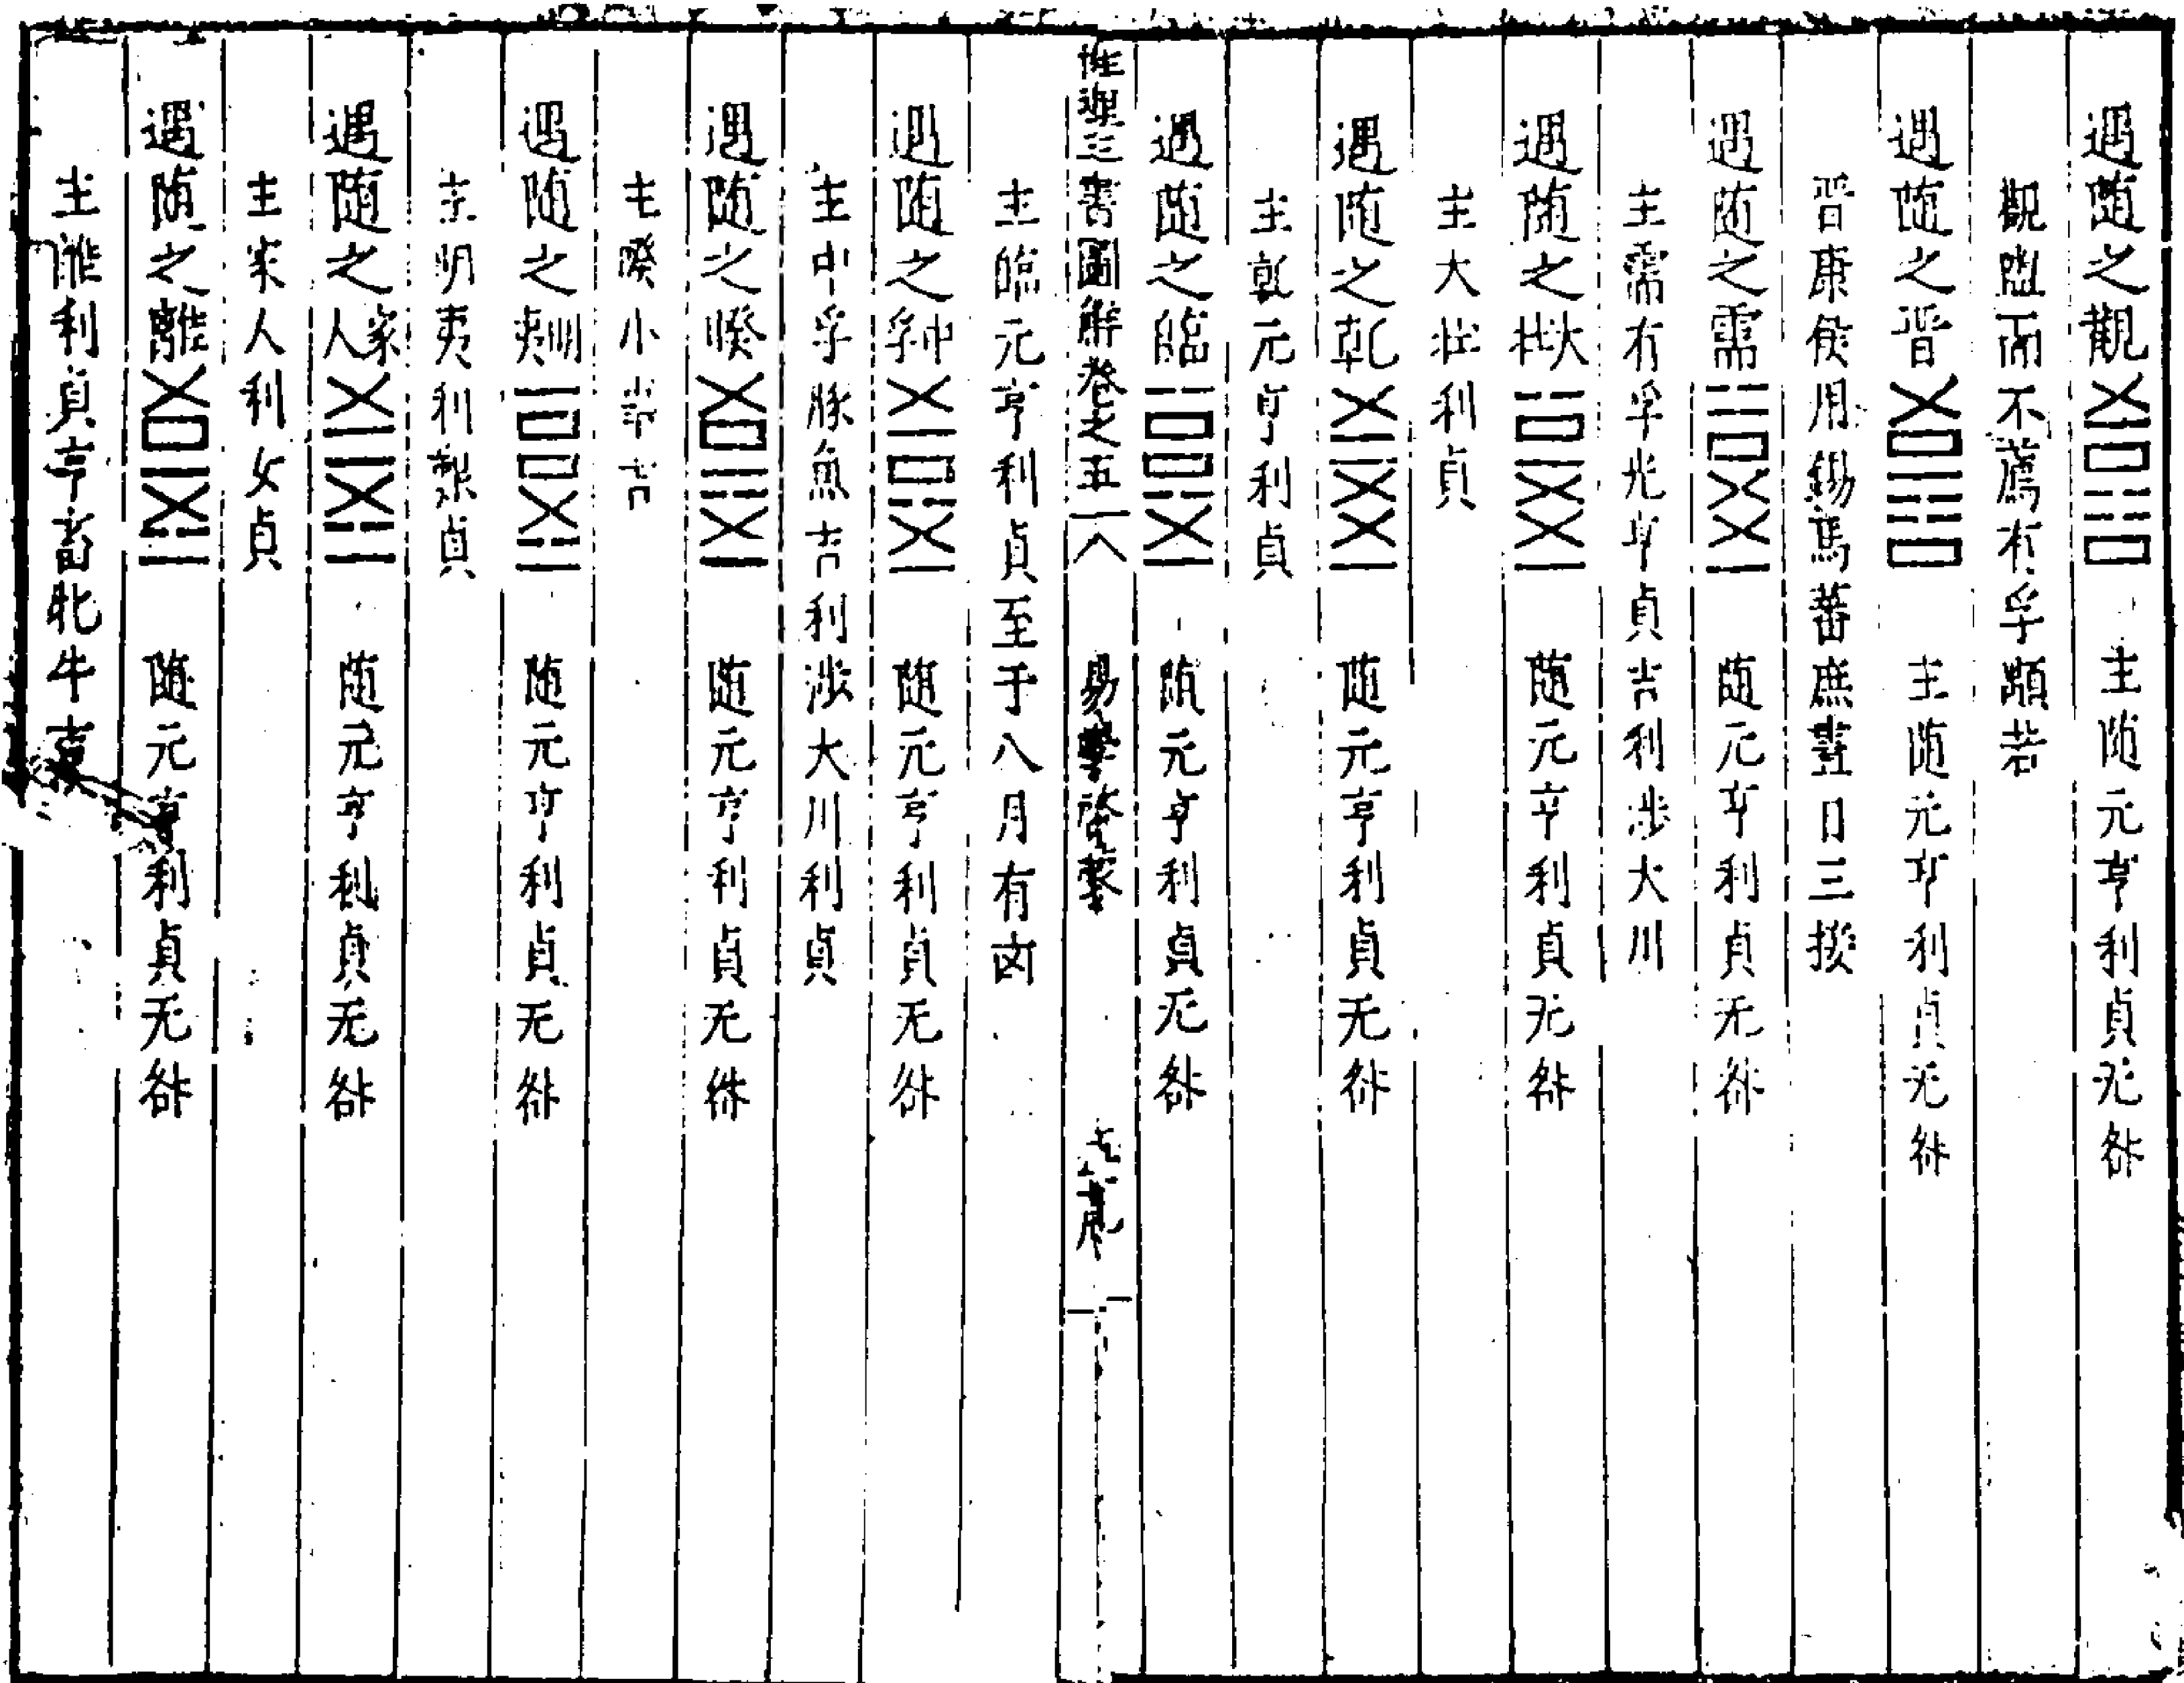 遇随之觀 主随元亨利貞无咎
觀盥而不薦有孚顒若
遇随之晋 主随元亨利貞无咎
晋康侯用錫馬蕃庶晝日三接
遇随之需 随元亨利貞无咎
主需有孚光亨貞吉利涉大川
遇随之大壯 随元亨利貞无咎
主大壯利貞
遇随之乾 随元亨利貞无咎
主乾元亨利貞
遇随之臨 随元亨利貞无咎
性理三書圖解卷之五 易學啓蒙
主臨元亨利貞至于八月有凶
遇随之中孚 随元亨利貞无咎
主中孚豚魚吉利涉大川利貞
遇随之睽 随元亨利貞无咎
主睽小事吉
遇随之明夷 随元亨利貞无咎
主明夷利艱貞
遇随之家人 随元亨利貞无咎
主家人利女貞
遇随之離 随元亨利貞无咎
主離利貞亨畜牝牛吉